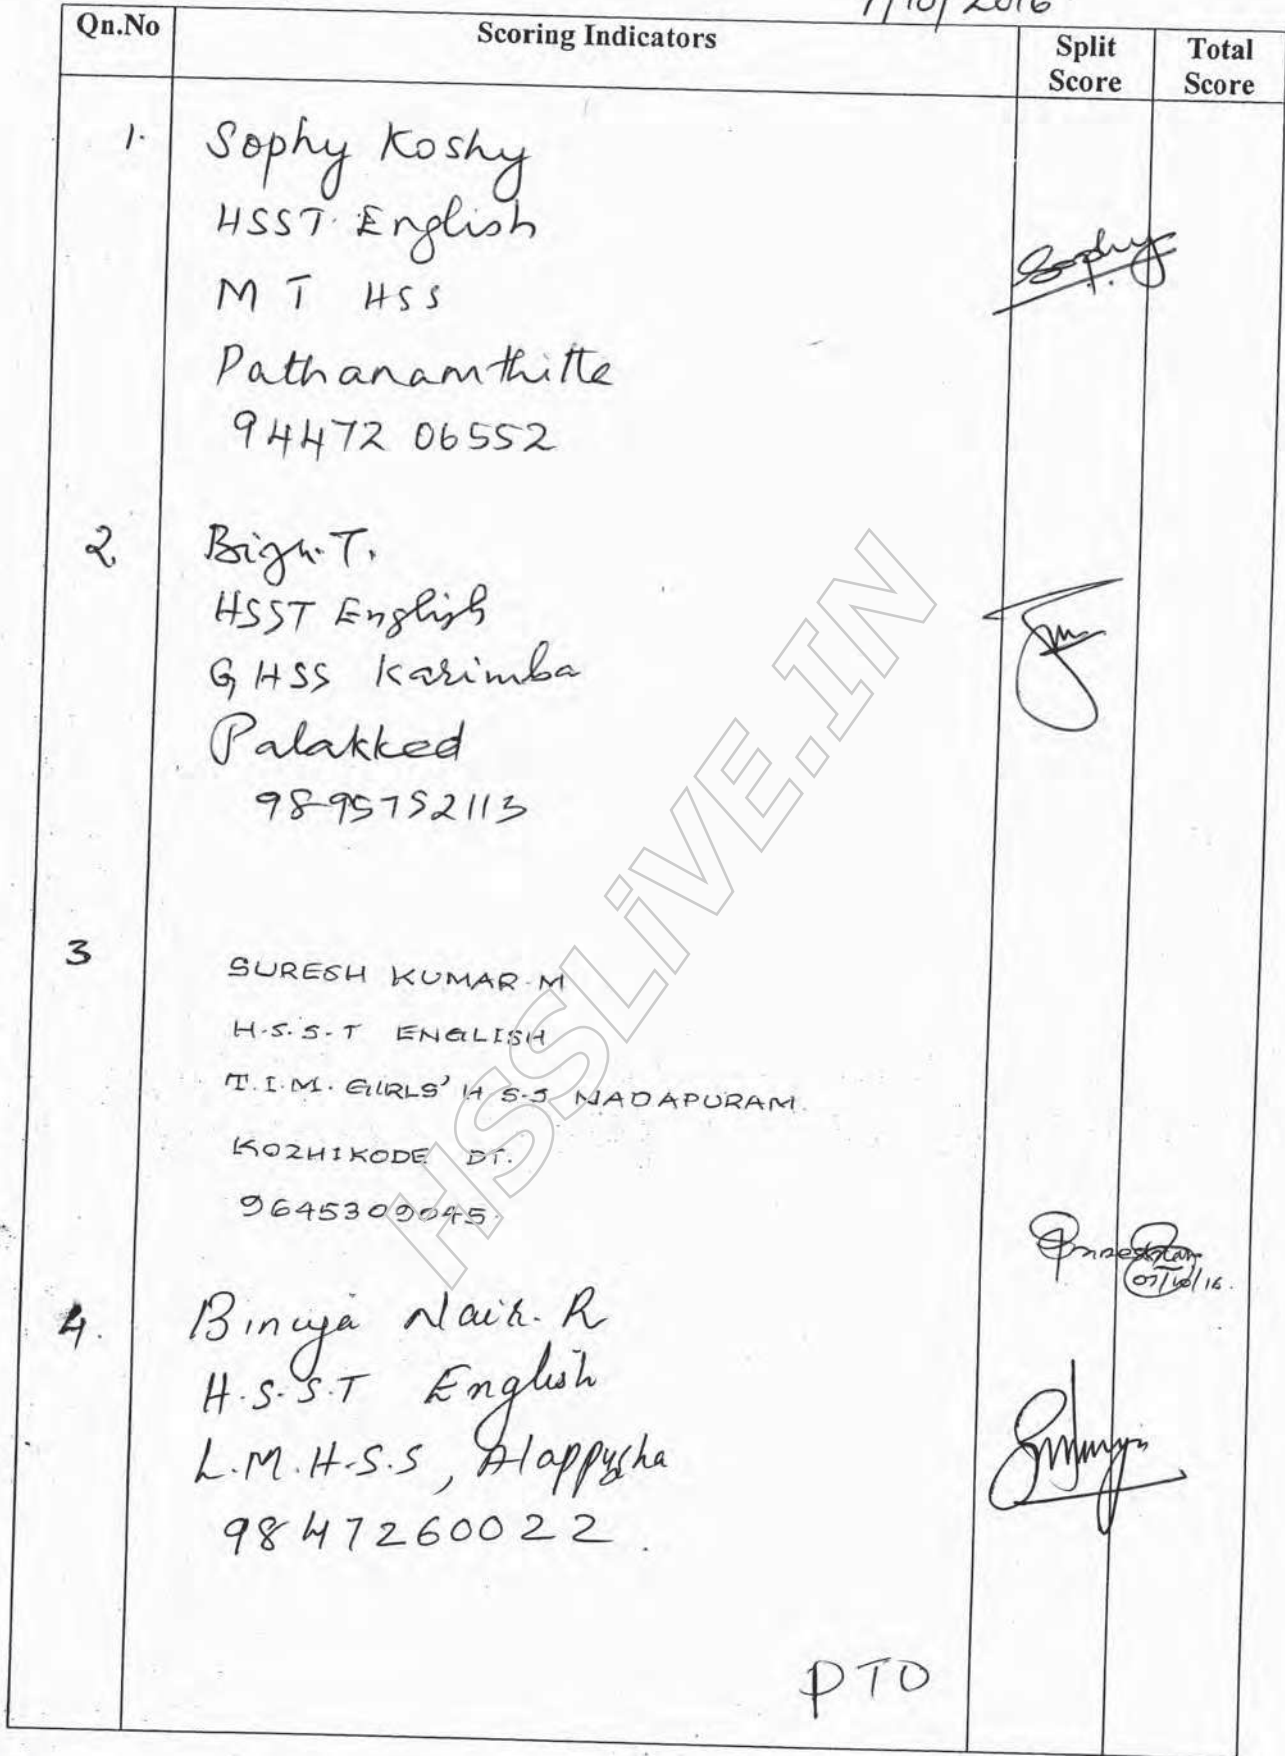 7/10/2016
Qn.No Scoring Indicators Split Score Total Score
1. Sophy Koshy
HSST English
M T HSS
Pathanamthitte
94472 06552
Sophy
2 Biju. T.
HSST English
G HSS Karimba
Palakked
9895752113
3 SURESH KUMAR M
H.S.S.T ENGLISH
T.I.M. GIRLS' H S.S NADAPURAM
KOZHIKODE DT.
9645309045
07/10/16.
4. Binuja Nair. R
H.S.S.T English
L.M.H.S.S, Alappuzha
9847260022.
PTO
HSSLiVE.IN